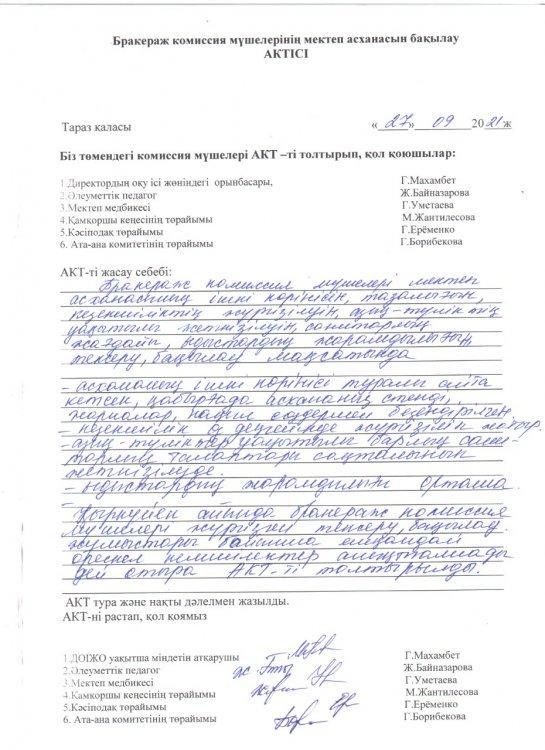 Бракераж комиссия мүшелерінің мектеп асханасын бақылау
АКТІСІ
Тараз қаласы «27» 09 2021 ж
Біз төмендегі комиссия мүшелері АКТ –ті толтырып, қол қоюшылар:
1.Директордың оқу ісі жөніндегі орынбасары, Г.Махамбет
2.Әлеуметтік педагог Ж.Байназарова
3.Мектеп медбикесі Г.Уметаева
4.Қамқоршы кеңесінің төрайымы М.Жантилесова
5.Кәсіподақ төрайымы Г.Ерёменко
6. Ата-ана комитетінің төрайымы Г.Борибекова
АКТ-ті жасау себебі:
Бракераж комиссия мүшелері мектеп
асханасының ішкі көрінісін, тазалығын,
кезекшіліктің жүргізілуін, азық-түліктің
уақытылы жеткізілуін, санитарлық
жағдайын, ыдыстардың жарамдылығын
тексеру, бақылау мақсатында
- асхананың ішкі көрінісі туралы айта
кетсек, қабырғада асхананың стенді,
безендірілген.
- кезекшілік өз деңгейінде жүргізіліп жатыр.
- азық-түліктер уақытылы барлық сани-
тарлық талаптары сақталынып
жеткізілуде.
- ыдыстардың жарамдылығы орташа.
Қыркүйек айында бракераж комиссия
мүшелері жүргізген тексеру, бақылау
жұмыстары бойынша ешқандай
өрескел кемшіліктер анықталмады
дей отыра АКТ-ті толтырылды.
АКТ тура және нақты дәлелмен жазылды.
АКТ-ні растап, қол қоямыз
1.ДОІЖО уақытша міндетін атқарушы Г.Махамбет
2.Әлеуметтік педагог Ж.Байназарова
3.Мектеп медбикесі Г.Уметаева
4.Қамқоршы кеңесінің төрайымы М.Жантилесова
5.Кәсіподақ төрайымы Г.Ерёменко
6. Ата-ана комитетінің төрайымы Г.Борибекова